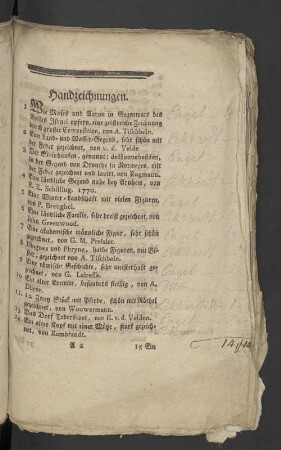 Handzeichnungen.
1 Wie Moses und Aaron in Gegenwart des
Volkes Israel opfern, eine geistreiche Zeichnung
durch großer Composition, von A. Tischbein.
2 Eine Land- und Wasser-Gegend, sehr schön mit
der Feder gezeichnet, von v. d. Velde.
3 Der Steinhausen, genannt:
in der Gegend von Drenthe in
der Feder gezeichnet und lavirt, von
4 Eine ländliche Gegend nahe bey Arnhem, von
Schilling. 1770.
5 Eine Winter-Landschaft mit vielen Figuren,
von P. Breughel.
6 Eine ländliche Familie, sehr dreist gezeichnet, von
John Greenwood.
7 Eine academische männliche Figur, sehr schön
gezeichnet, von G. M. Preisler.
8 und Phryne, halbe Figuren, mit
gezeichnet von A. Tischbein.
9 Eine römische Geschichte, sehr meisterhaft ge-
zeichnet, von G. Lairesse.
10 Ein alter Eremite, besonders fleißig, von A.
11. 12 Zwey Stück mit Pferde, schön mit Röthel
gezeichnet, von Wouwermann.
13 Das Dorf von E. v. d. Velden.
14 Ein alter Kopf mit einer Mütze, stark gezeich-
net, von Rembrandt.
A 2
15 Ein